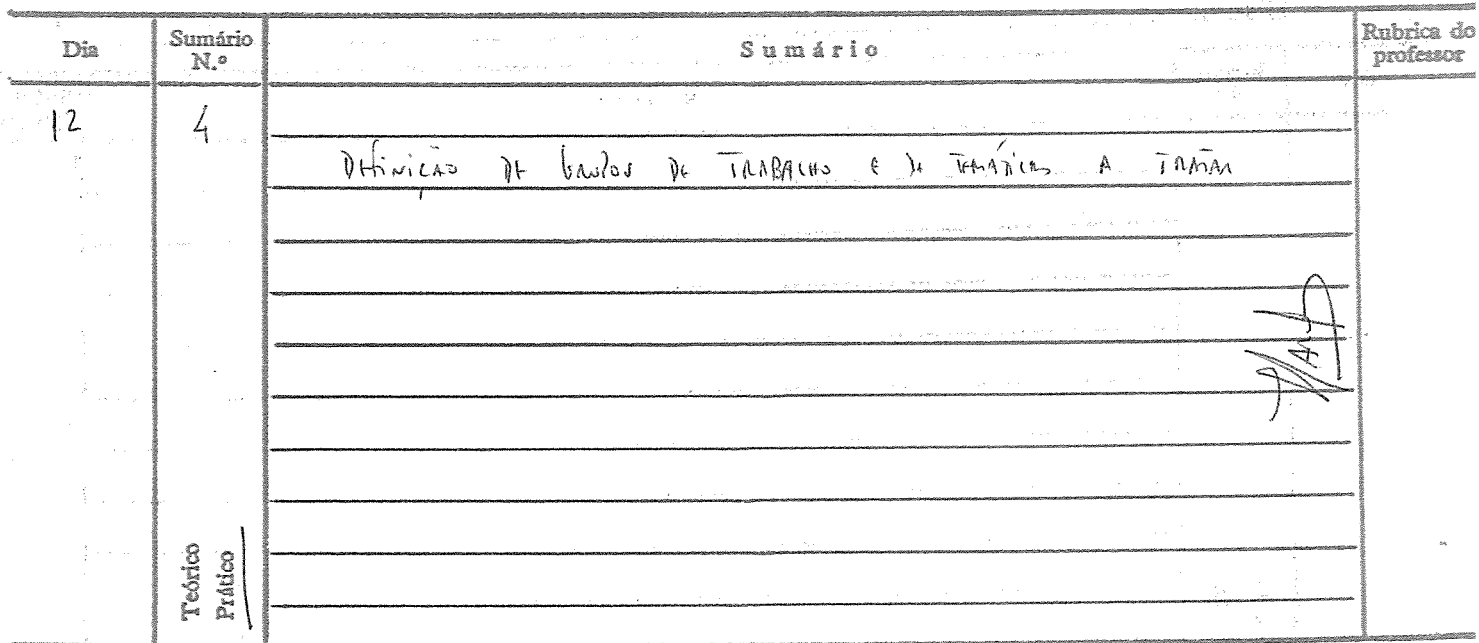 Dia
Sumário N.º
Sumário
Rubrica do professor
12
4
Definição de Grupos de Trabalho e de Temáticas a Tratar
Teórico
Prático